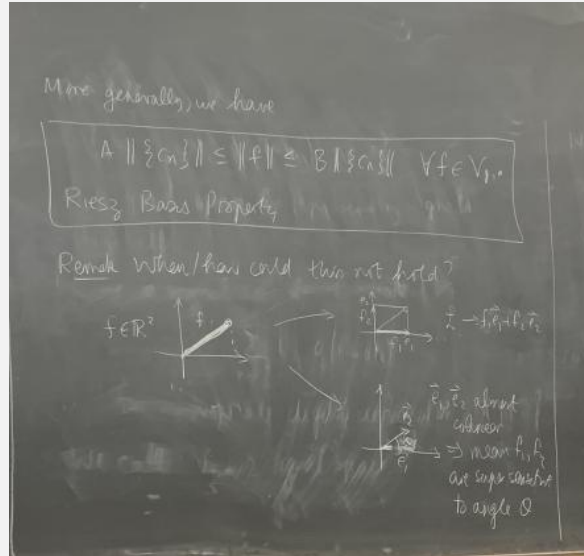 More generally, we have
A ||{cn}|| ≤ ||f|| ≤ B ||{cn}|| ∀f ∈ V
Riesz Basis Property
Remark When/how could this not hold?
f ∈ ℝ²
f
e₂
f₂
f₁ e₁
→ f₁e⃗₁ + f₂e⃗₂
e⃗₂
e⃗₁
e⃗₁, e⃗₂ almost
colinear
⇒ mean f₁, f₂
are super sensitive
to angle θ